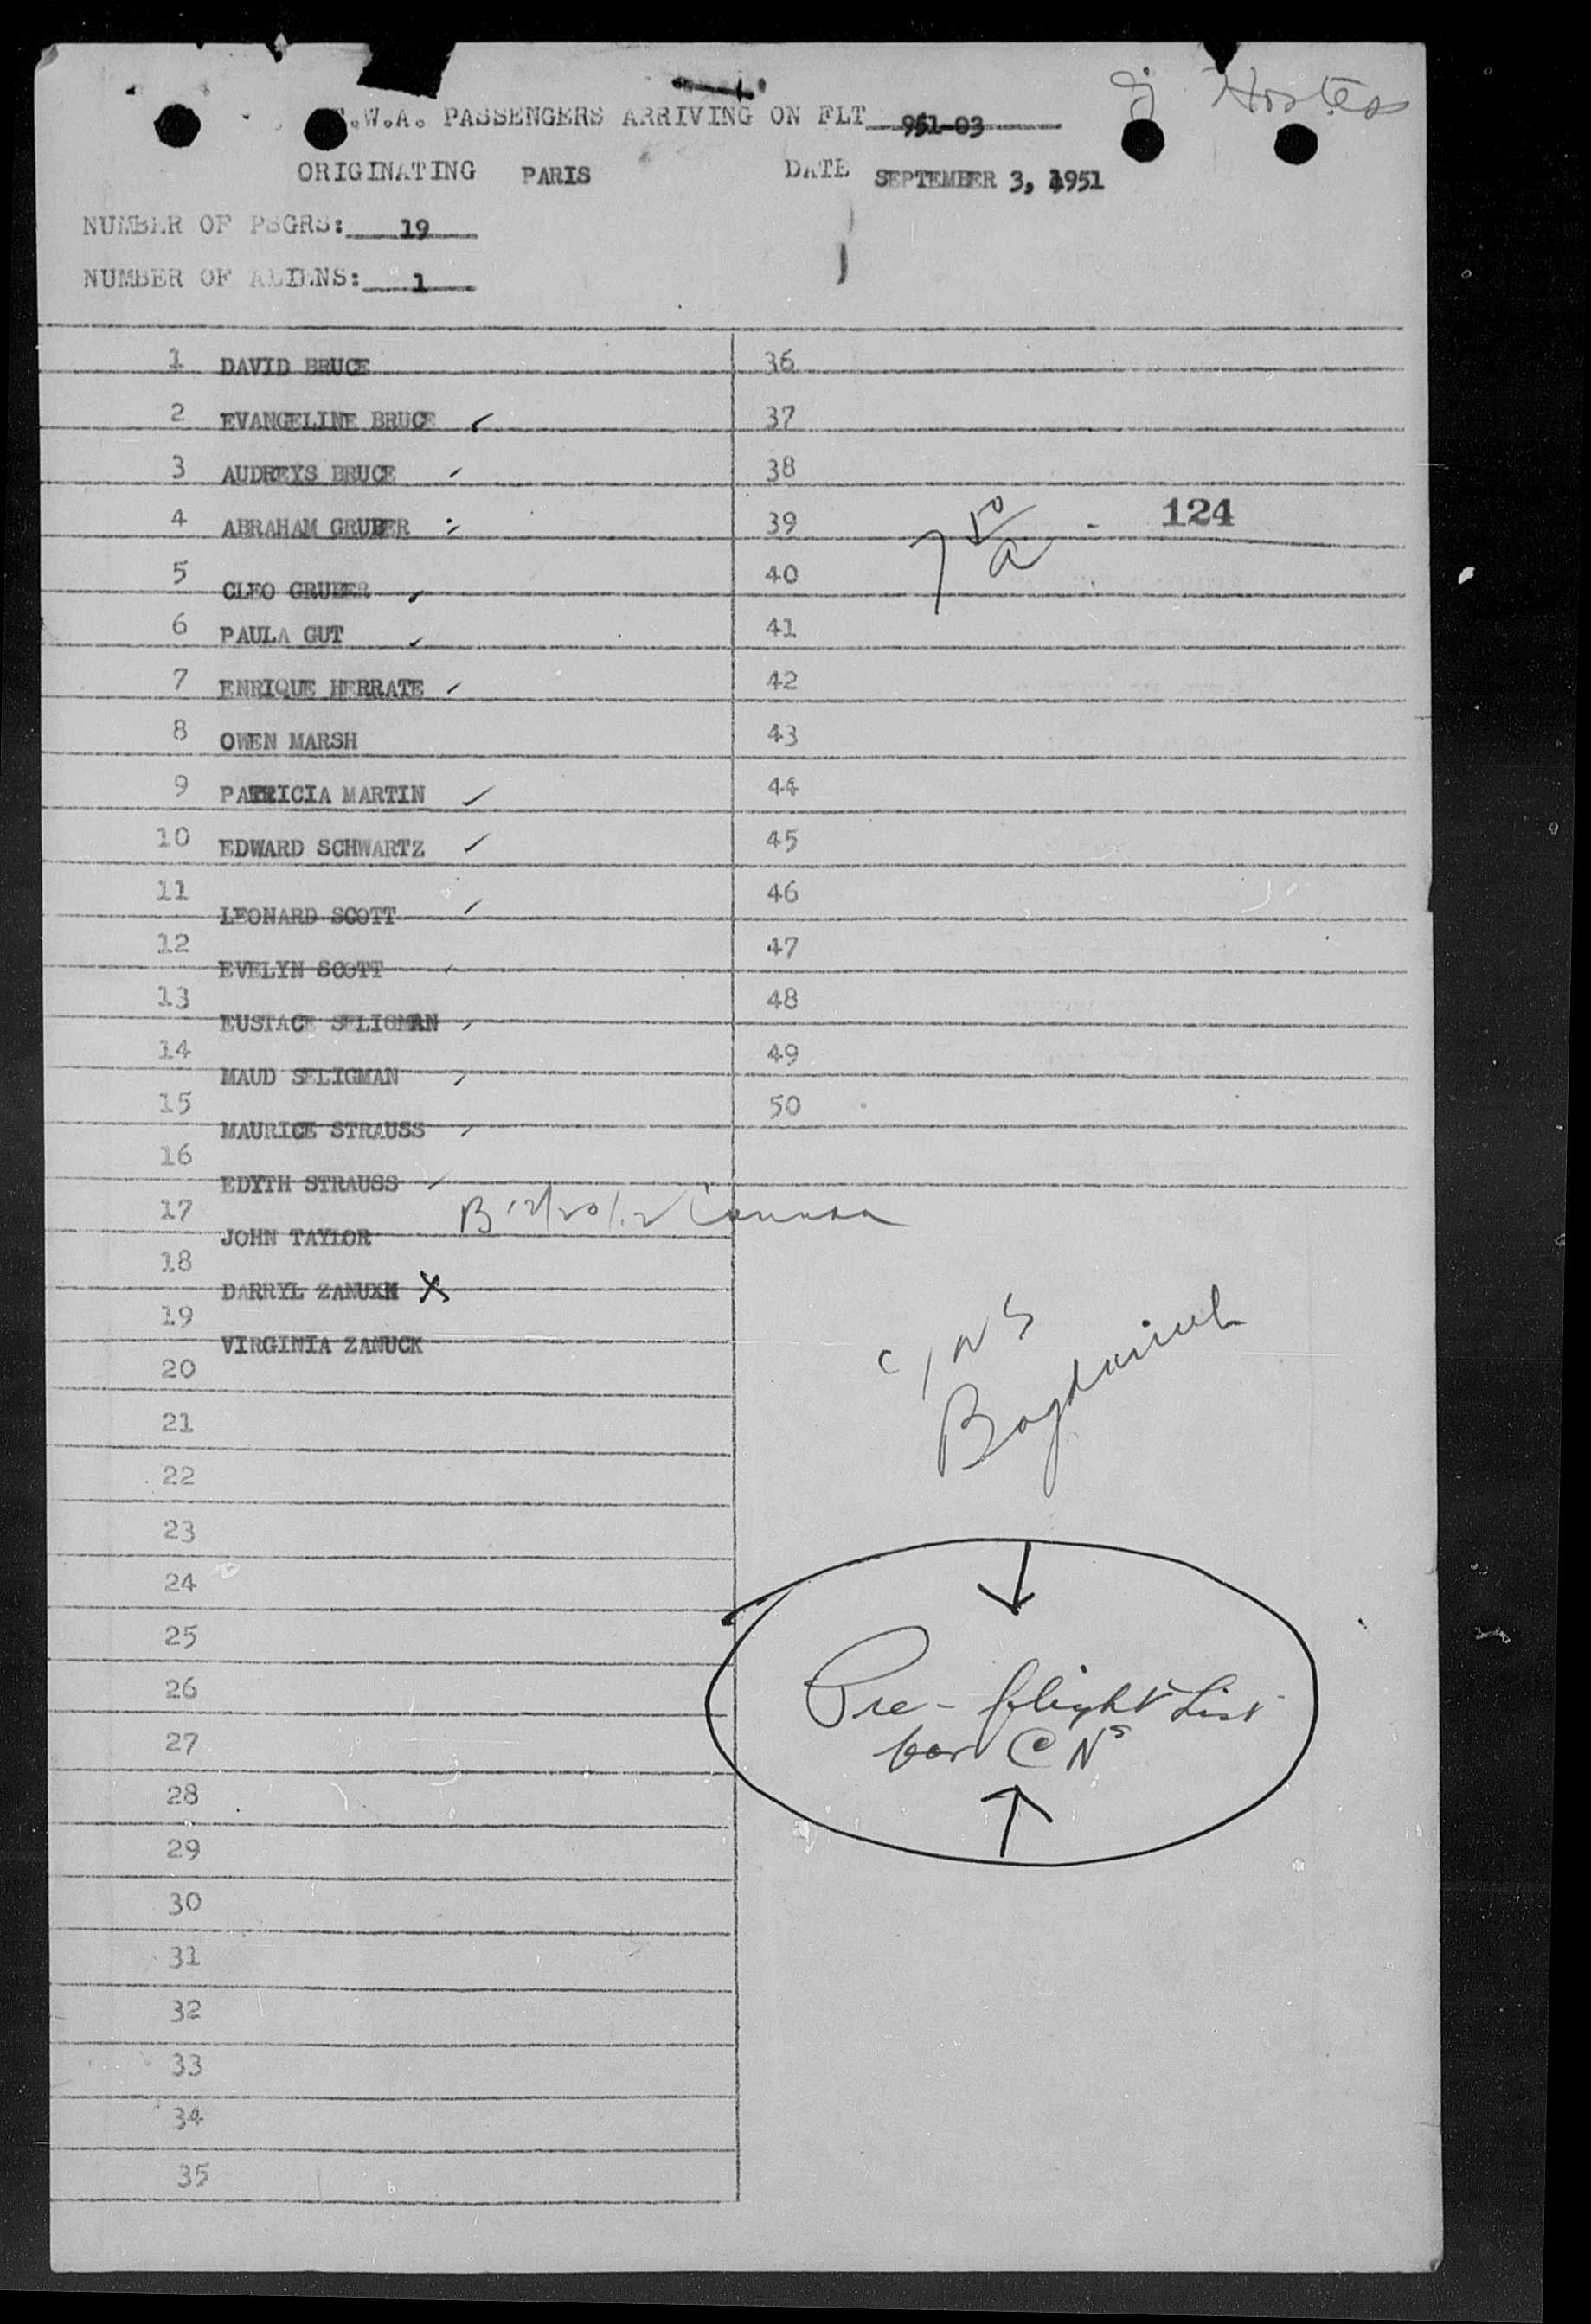 Hostess
T.W.A. PASSENGERS ARRIVING ON FLT 951-03
ORIGINATING PARIS DATE SEPTEMBER 3, 1951
NUMBER OF PSGRS: 19
NUMBER OF ALIENS: 1
1 DAVID BRUCE
2 EVANGELINE BRUCE
3 AUDREYS BRUCE
4 ABRAHAM GRUBER
5 CLEO GRUBER
6 PAULA GUT
7 ENRIQUE HERRATE
8 OWEN MARSH
9 PATRICIA MARTIN
10 EDWARD SCHWARTZ
11 LEONARD SCOTT
12 EVELYN SCOTT
13 EUSTACE SELIGMAN
14 MAUD SELIGMAN
15 MAURICE STRAUSS
16 EDYTH STRAUSS
17 JOHN TAYLOR
18 DARRYL ZANUXK X
19 VIRGINIA ZANUCK
20
21
22
23
24
25
26
27
28
29
30
31
32
33
34
35
36
37
38
39 7 50/a - 124
40
41
42
43
44
45
46
47
48
49
50
Pre-flight List
for C NS